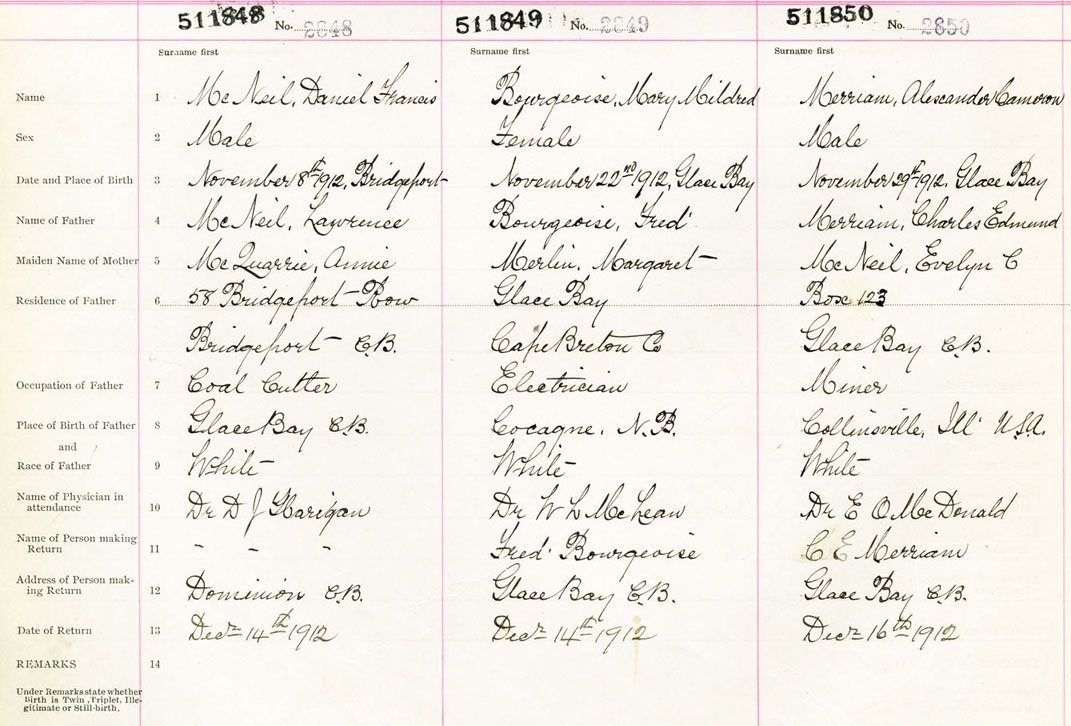 511848 No. 2848 511849 No. 2849 511850 No. 2850
Surname first Surname first Surname first
Name 1 McNeil, Daniel Francis Bourgeoise, Mary Mildred Merriam, Alexander Cameron
Sex 2 Male Female Male
Date and Place of Birth 3 November 8th 1912, Bridgeport November 22nd 1912, Glace Bay November 29th 1912, Glace Bay
Name of Father 4 McNeil, Lawrence Bourgeoise, Fred' Merriam, Charles Edmund
Maiden Name of Mother 5 McQuarrie, Annie Merlin, Margaret McNeil, Evelyn C
Residence of Father 6 58 Bridgeport Row Glace Bay Box 123
Bridgeport C.B. Cape Breton Co Glace Bay C.B.
Occupation of Father 7 Coal Cutter Electrician Miner
Place of Birth of Father 8 Glace Bay C.B. Cocagne, N.B. Collinsville, Ill' U.S.A.
and
Race of Father 9 White White White
Name of Physician in
attendance 10 Dr D J Dr W L McLean Dr E O McDonald
Name of Person making
Return 11 - - - Fred' Bourgeoise C E Merriam
Address of Person mak-
ing Return 12 Dominion C.B. Glace Bay C.B. Glace Bay C.B.
Date of Return 13 Decr 14th 1912 Decr 14th 1912 Decr 16th 1912
REMARKS 14
Under Remarks state whether
Birth is Twin, Triplet, Ille-
gitimate or Still-birth.